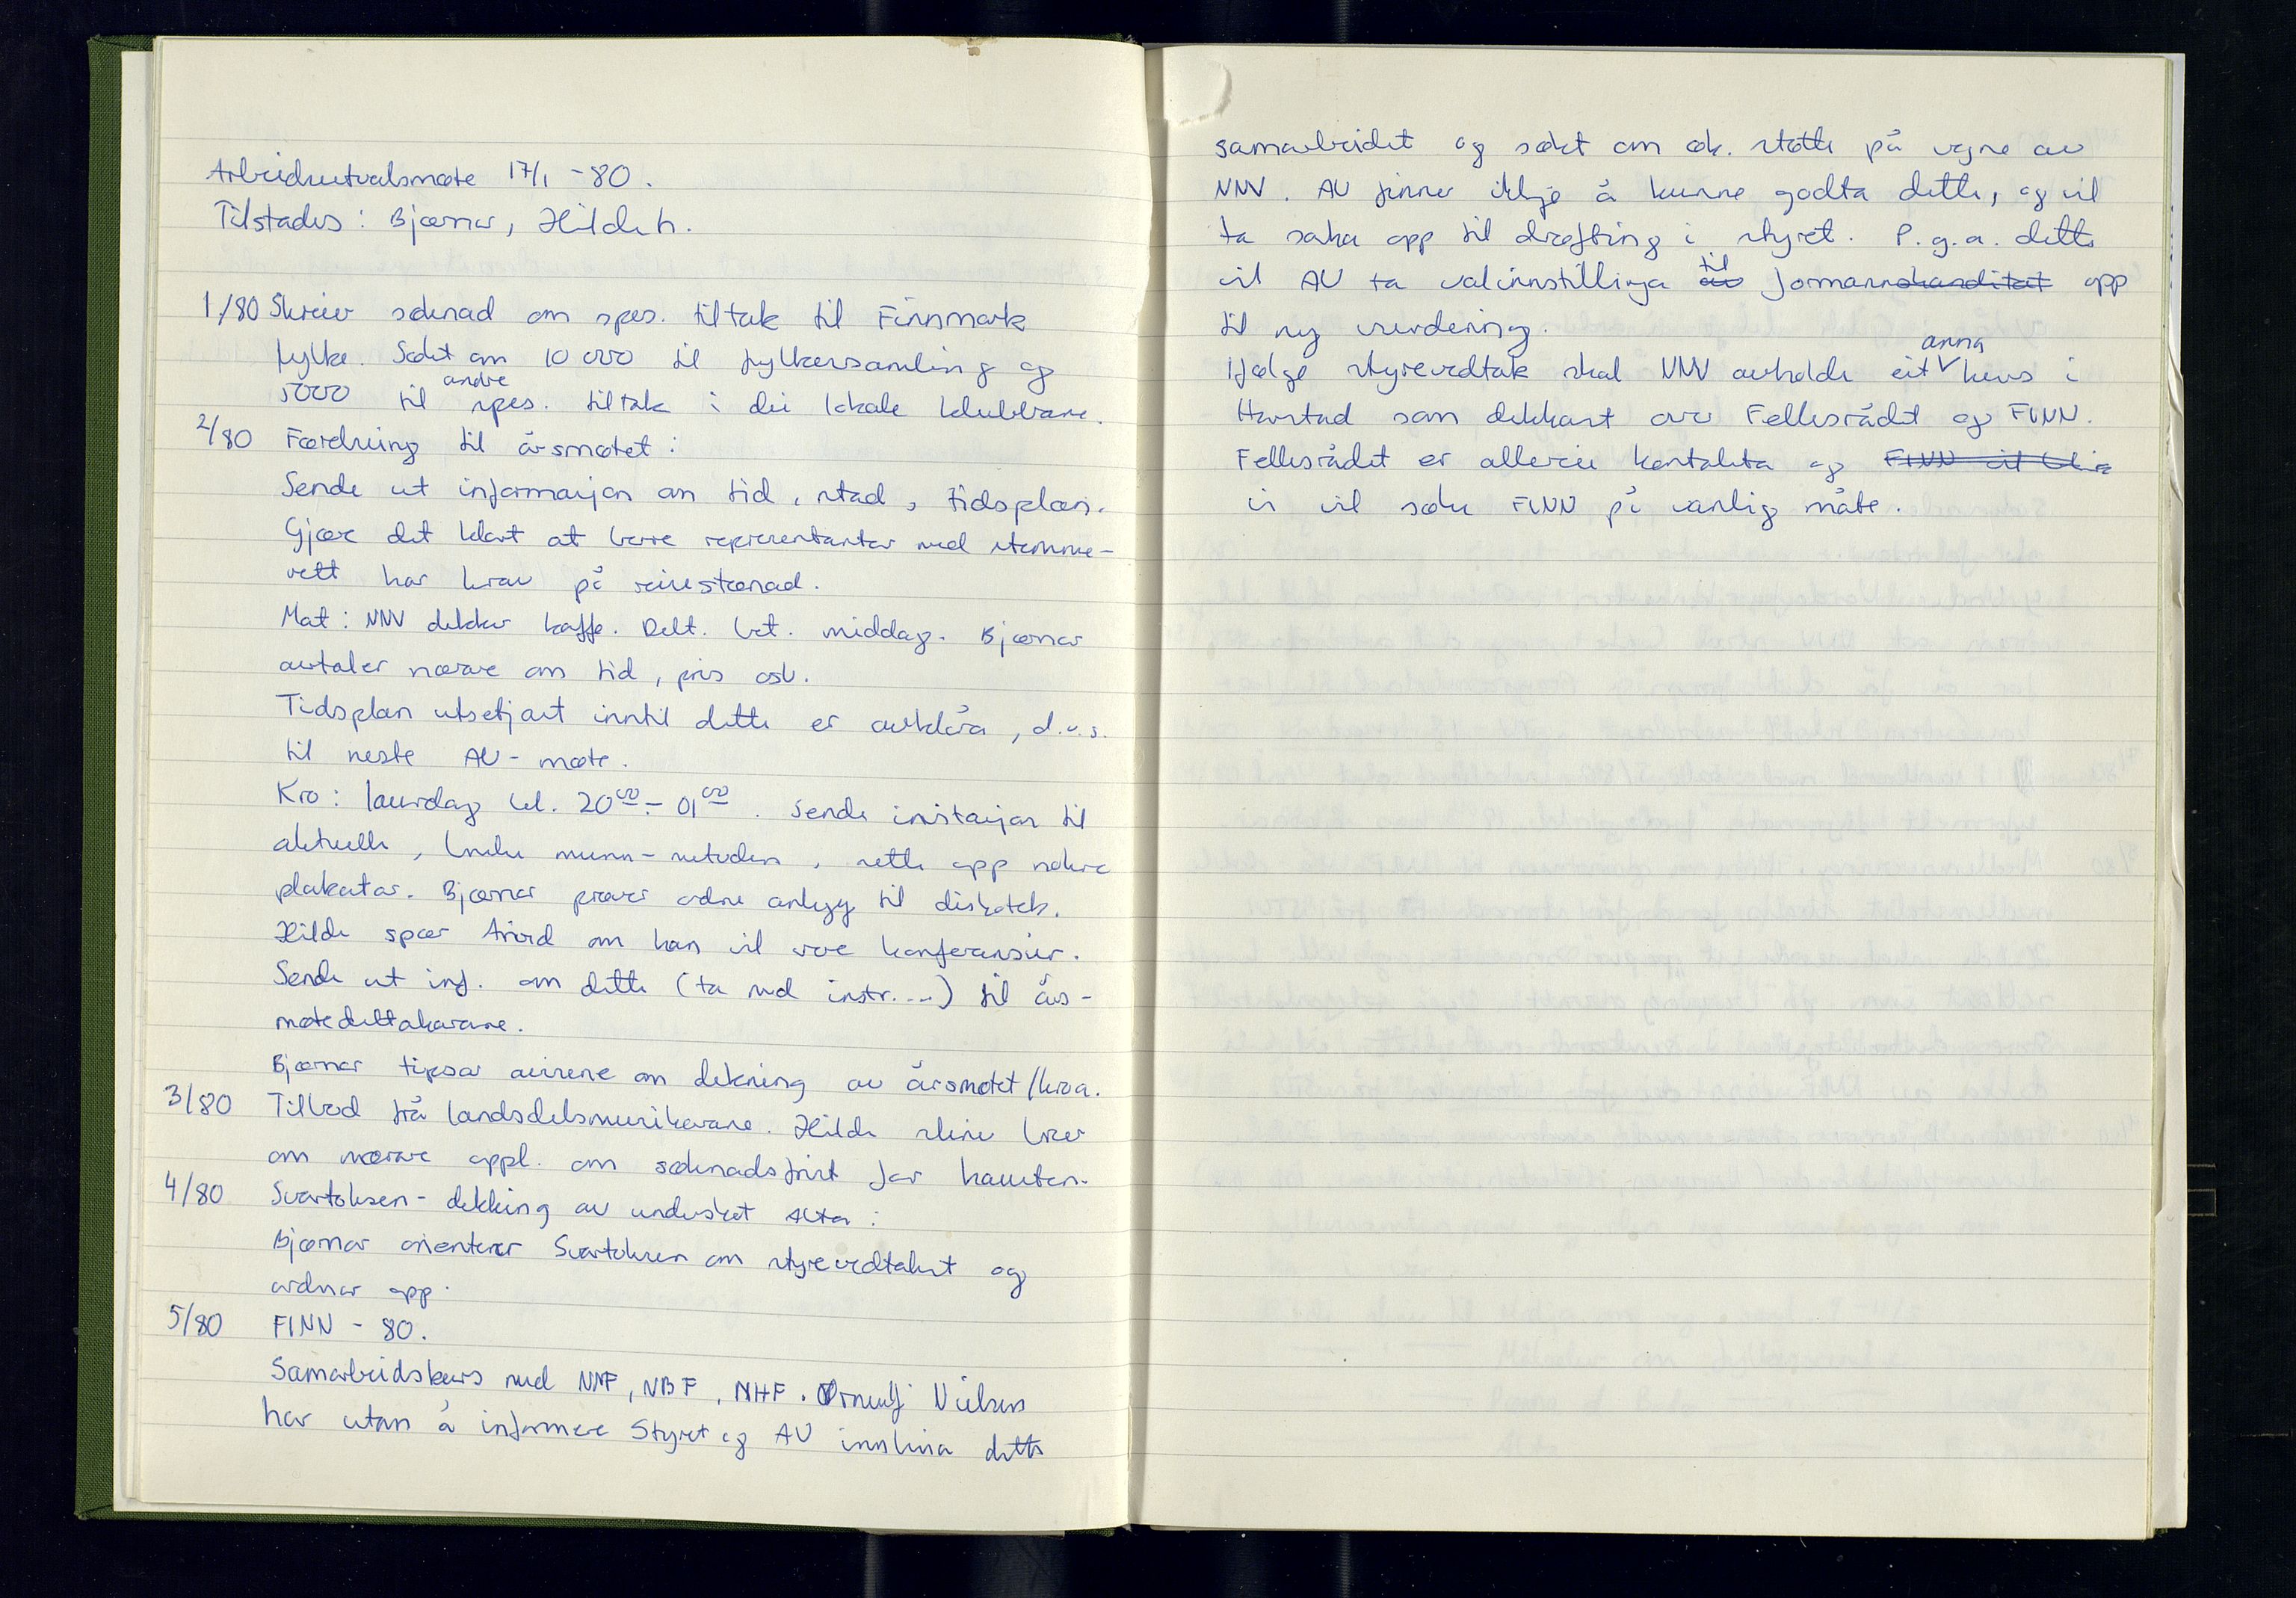 Arbeidsutvalsmøte 17/1 -80.
Tilstades: Bjørnar, Hilde h.
1/80 Skreiv søknad om spes. tiltak til Finnmark
fylke. Søkt om 10 000 til fylkessamling og
andre
5000 til spes. tiltak i dei lokale klubbane.
2/80 Førebuing til årsmøtet:
Sende ut informasjon om tid, stad, tidsplan.
Gjøre det klart at berre representantar med stemme-
rett har krav på reisestønad.
Mat: NNV dekker kaffe. Delt. bet. middag. Bjørnar
avtaler nærare om tid, pris osv.
Tidsplan utsetjast inntil dette er avklåra, d.v.s.
til neste AU-møte.
Kro: laurdag kl. 20⁰⁰ - 01⁰⁰. Sende invitasjon til
aktuelle, bruke munn-metoden, sette opp nokre
plakatar. Bjørnar prøver ordne anlegg til diskotek.
Hilde spør Arvid om han vil være konferansier.
Sende ut inf. om dette (ta med instr....) til års-
møtedeltakarane.
Bjørnar tipsar avisene om dekning av årsmøtet/kroa.
3/80 Tilbod frå landsdelsmusikarane. Hilde skriv brev
om nærare oppl. om søknadsfrist for hausten.
4/80 Svartoksen - dekking av underskot Alta:
Bjørnar orienterer Svartoksen om styrevedtaket og
ordnar opp.
5/80 FINN - 80.
Samarbeidskurs med NMF, NBF, NHF. Ørnulf Nielsen
har utan å informere Styret og AU innleia dette
samarbeidet og søkt om øk. støtte på vegne av
NNV. AU finner ikkje å kunne godta dette, og vil
ta saka opp til drøfting i styret. P.g.a. dette
vil AU ta valinnstillinga av til formannskanditat opp
til ny vurdering.
Ifølge styrevedtak skal NNV avholde eit anna kurs i
Harstad som dekkast over Fellesrådet og FINN.
Fellesrådet er allereie kontakta og FINN vil bli
vi vil søke FINN på vanlig måte.